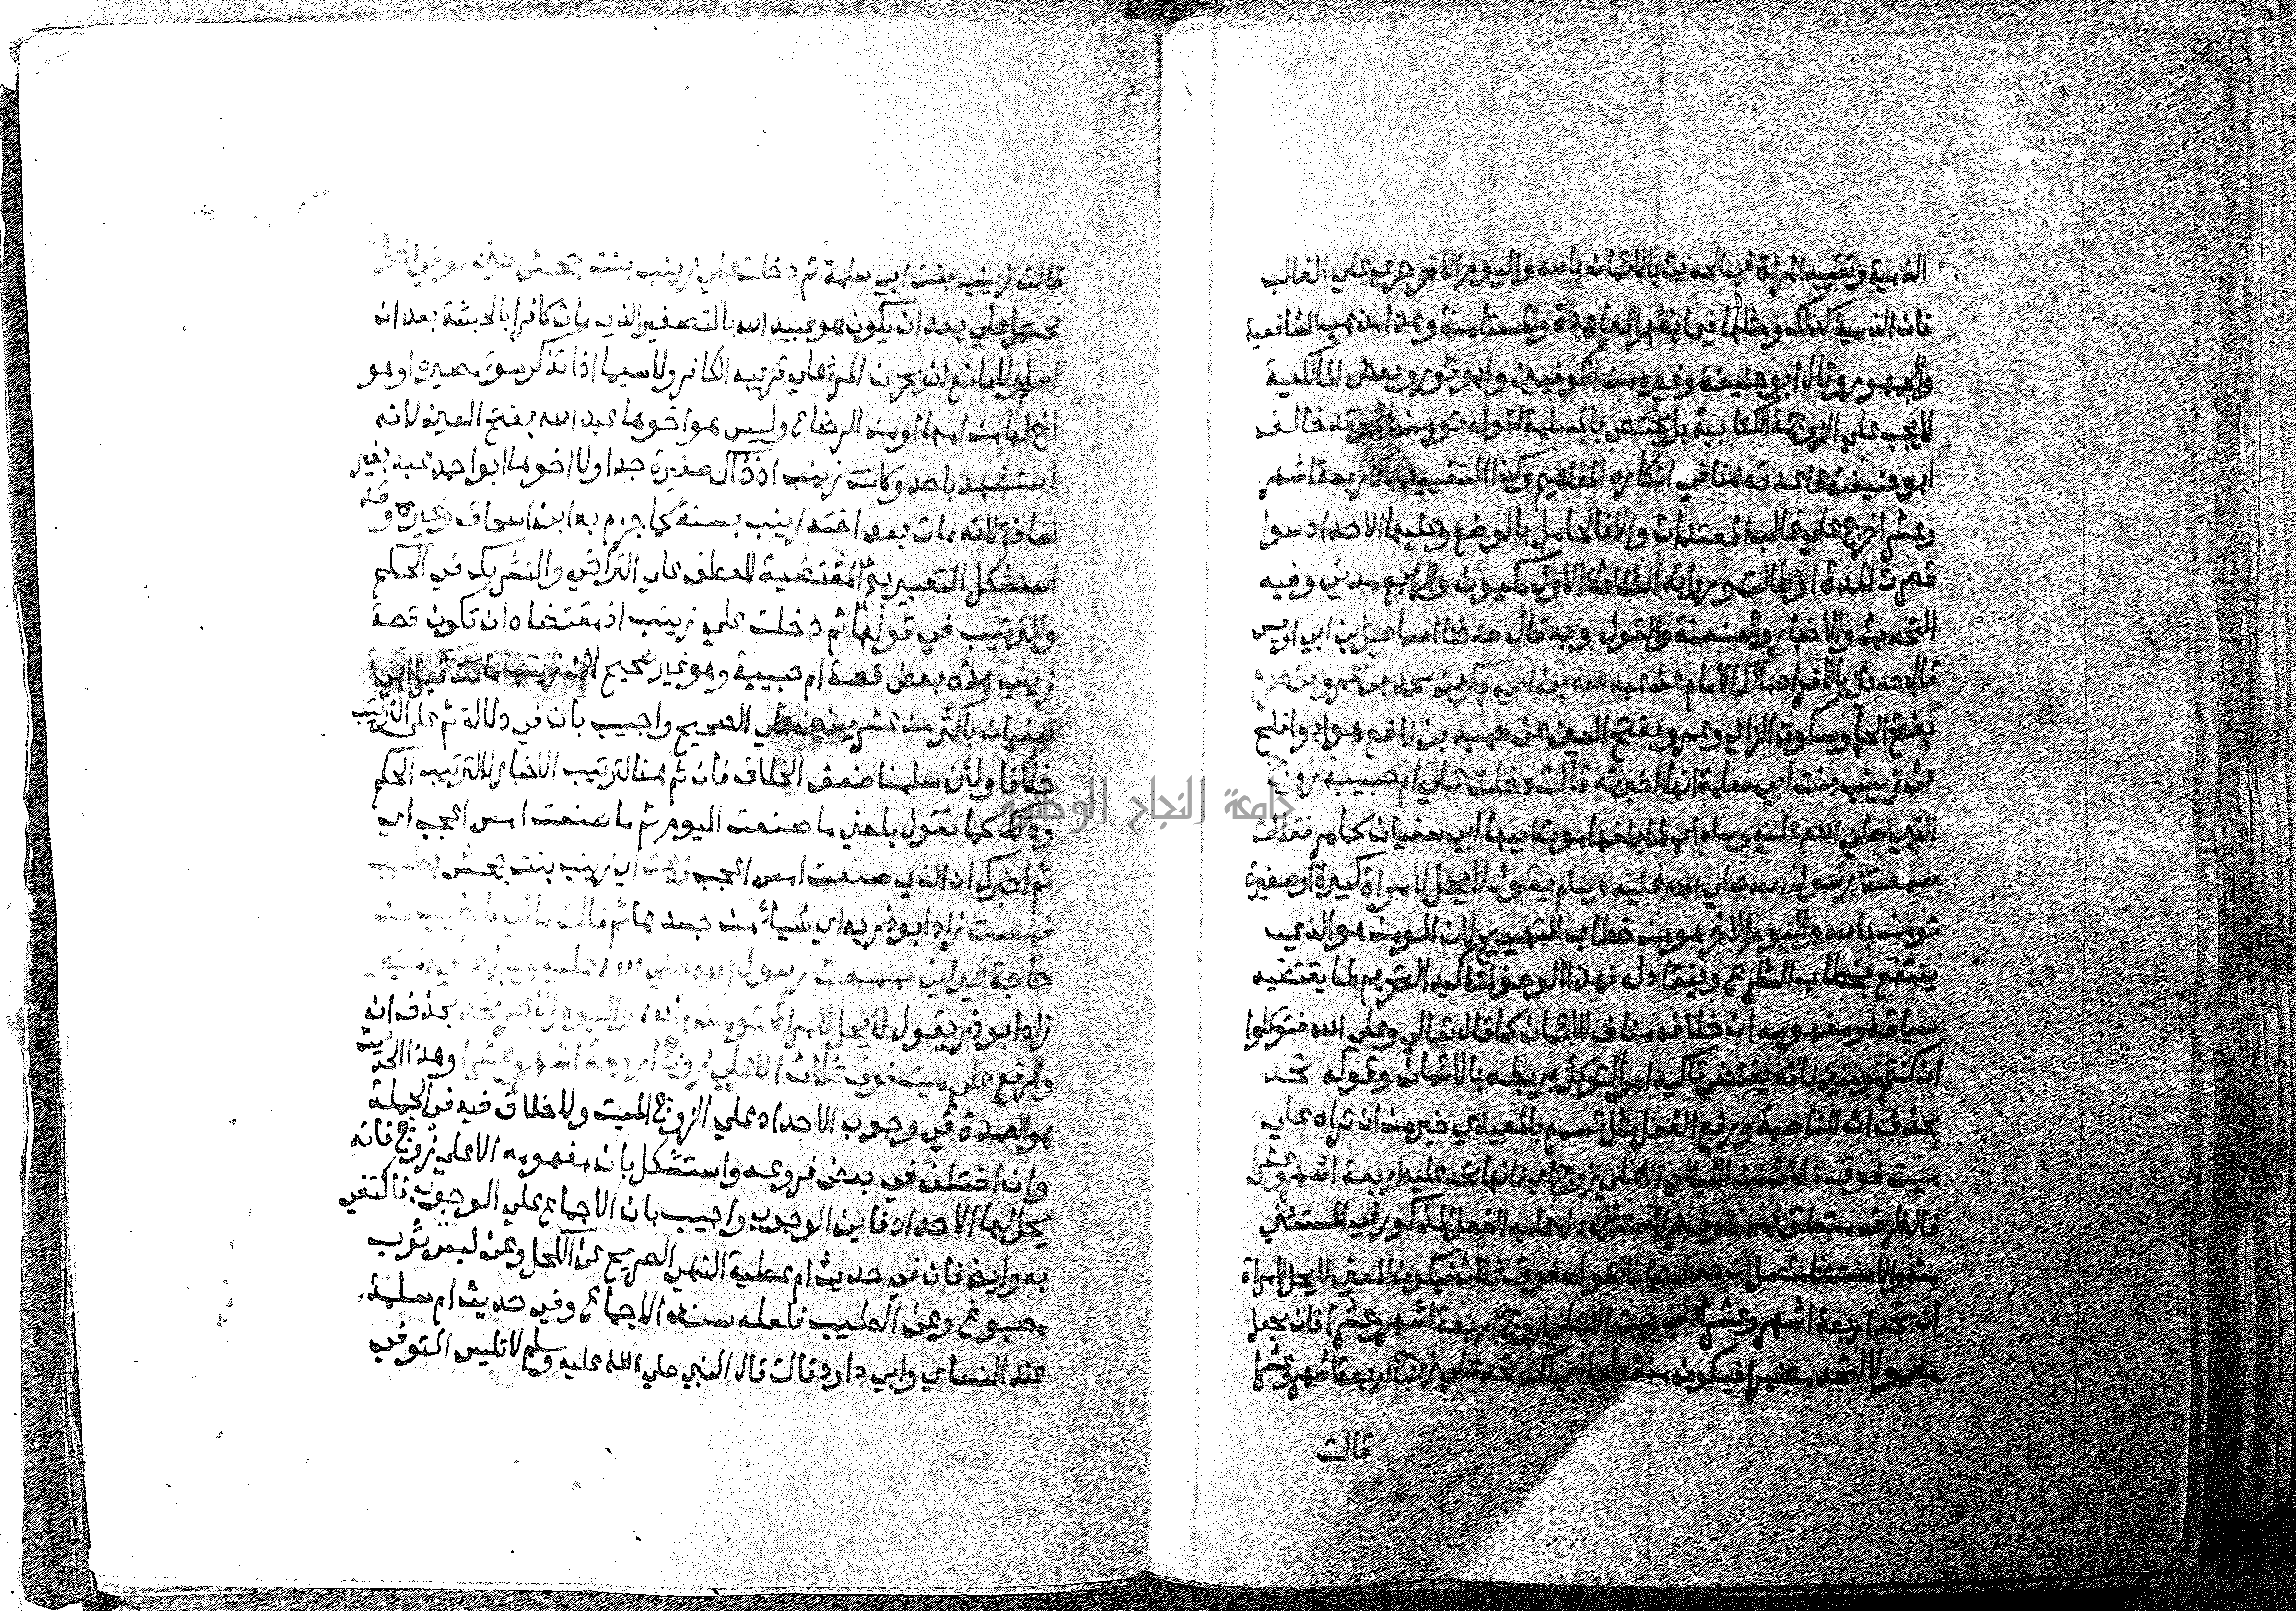 الذمية وتقييد المراة في الحديث بالايمان بالله واليوم الاخر جري علي الغالب
فان الذمية كذلك ومثلها فيما يظهر المعاهدة والمستامنة وهذا مذهب الشافعية
والجمهور وقال ابو حنيفة وغيره من الكوفيين وابو ثور وبعض المالكية
لا يجب علي الزوجة الكتابية بل يختص بالمسلمة لقوله تومن الخ وقد خالف
ابو حنيفة قاعدته هنا في انكاره المفاهيم وكذا التقييد بالاربعة اشهر
وعشر اخرج علي غالب المعتدات والا فالحامل بالوضع وعليها الاحداد سوا
قصرت المدة او طالت ورواته الثلاثة الاول مكيون والرابع مدني وفيه
التحديث والاخبار والعنعنة والقول وبه قال حدثنا اسماعيل بن ابي اويس
قال حدثني بالافراد مالك الامام عن عبد الله بن ابي بكر بن محمد بن عمرو بن حزم
بفتح الحا وسكون الزاي وعمرو بفتح العين عن حميد بن نافع هو ابو افلح
عن زينب بنت ابي سلمة انها اخبرته قالت دخلت علي ام حبيبة زوج
النبي صلي الله عليه وسلم اي لما بلغها موت ابيها ابي سفيان كما مر فقالت
سمعت رسول الله صلي الله عليه وسلم يقول لا يحل لامراة كبيرة او صغيرة
تومن بالله واليوم الاخر هو من خطاب التهييج لان المومن هو الذي
ينتفع بخطاب الشارع وينقاد له فهذا الوصف لتاكيد التحريم لما يقتضيه
سياقه ومفهومه ان خلافه مناف للايمان كما قال تعالي وعلي الله فتوكلوا
ان كنتم مومنين فانه يقتضي تاكيد امر التوكل بربطه بالايمان وقوله تحد
بحذف ان الناصبة ورفع الفعل مثل تسمع بالمعيدي خير من ان تراه علي
ميت فوق ثلاث من الليالي الا علي زوج اي فانها تحد عليه اربعة اشهر وعشرا
فالظرف متعلق بمحذوف في المستثني دل عليه الفعل المذكور في المستثني
منه والاستثنا متصل ان جعل بيانا لقوله فوق ثلاث فيكون المعني لا يحل لامراة
ان تحد اربعة اشهر وعشرا علي ميت الا علي زوج اربعة اشهر وعشرا فان جعل
معمولا لتحد مضمرا فيكون منقطعا اي لكن تحد علي زوج اربعة اشهر وعشرا
قالت
قالت زينب بنت ابي سلمة ثم دخلت علي زينب بنت جحش حين توفي اخوها
يحتمل علي بعد ان يكون هو عبيد الله بالتصغير الذي مات كافرا بالحبشة بعد ان
اسلم ولا مانع ان يحزن المرء علي قريبه الكافر ولا سيما اذا تذكر سوء مصيره او هو
اخ لها من امها او من الرضاع وليس هو اخوها عبد الله بفتح العين لانه
استشهد باحد وكانت زينب اذ ذاك صغيرة جدا ولا اخوها ابو احمد عبد بغير
اضافة لانه مات بعد اخته زينب بسنة كما جزم به ابن اسحاق وغيره وقد
استشكل التعبير بثم المقتضية للعطف علي التراخي والتشريك في الحكم
والترتيب في قولها ثم دخلت علي زينب اذ مقتضاه ان تكون قصة
زينب هذه بعض قصة ام حبيبة وهو غير صحيح لان زينب ماتت قبل ابي
سفيان باكثر من عشر سنين علي الصحيح واجيب بان في دلالة ثم علي الترتيب
خلافا ولئن سلمنا ضعف الخلاف فان ثم هنا لترتيب الاخبار لا لترتيب الحكم
وذلك كما تقول بلغني ما صنعت اليوم ثم ما صنعت امس اعجب اي
ثم اخبرك ان الذي صنعت امس اعجب فدعت اي زينب بنت جحش بطيب
فمست زاد ابو ذر به اي شيا من جسدها ثم قالت مالي بالطيب من
حاجة غير اني سمعت رسول الله صلي الله عليه وسلم علي المنبر
زاد ابو ذر يقول لا يحل لامراة تومن بالله واليوم الاخر تحد بحذف ان
والرفع علي ميت فوق ثلاث الا علي زوج اربعة اشهر وعشرا وهذا الحديث
هو العمدة في وجوب الاحداد علي الزوج الميت ولا خلاف فيه في الجملة
وان اختلف في بعض فروعه واستشكل بان مفهومه الا علي زوج فانه
يحل لها الاحداد فاين الوجوب واجيب بان الاجماع علي الوجوب فاكتفي
به وايضا فان في حديث ام عطية النهي الصريح عن الكحل وعن لبس ثوب
مصبوغ وعن الطيب فلعله سند الاجماع وفي حديث ام سلمة
عند النساي وابي داود قالت قال النبي صلي الله عليه وسلم لا تلبس المتوفي
جامعة النجاح الوطنية